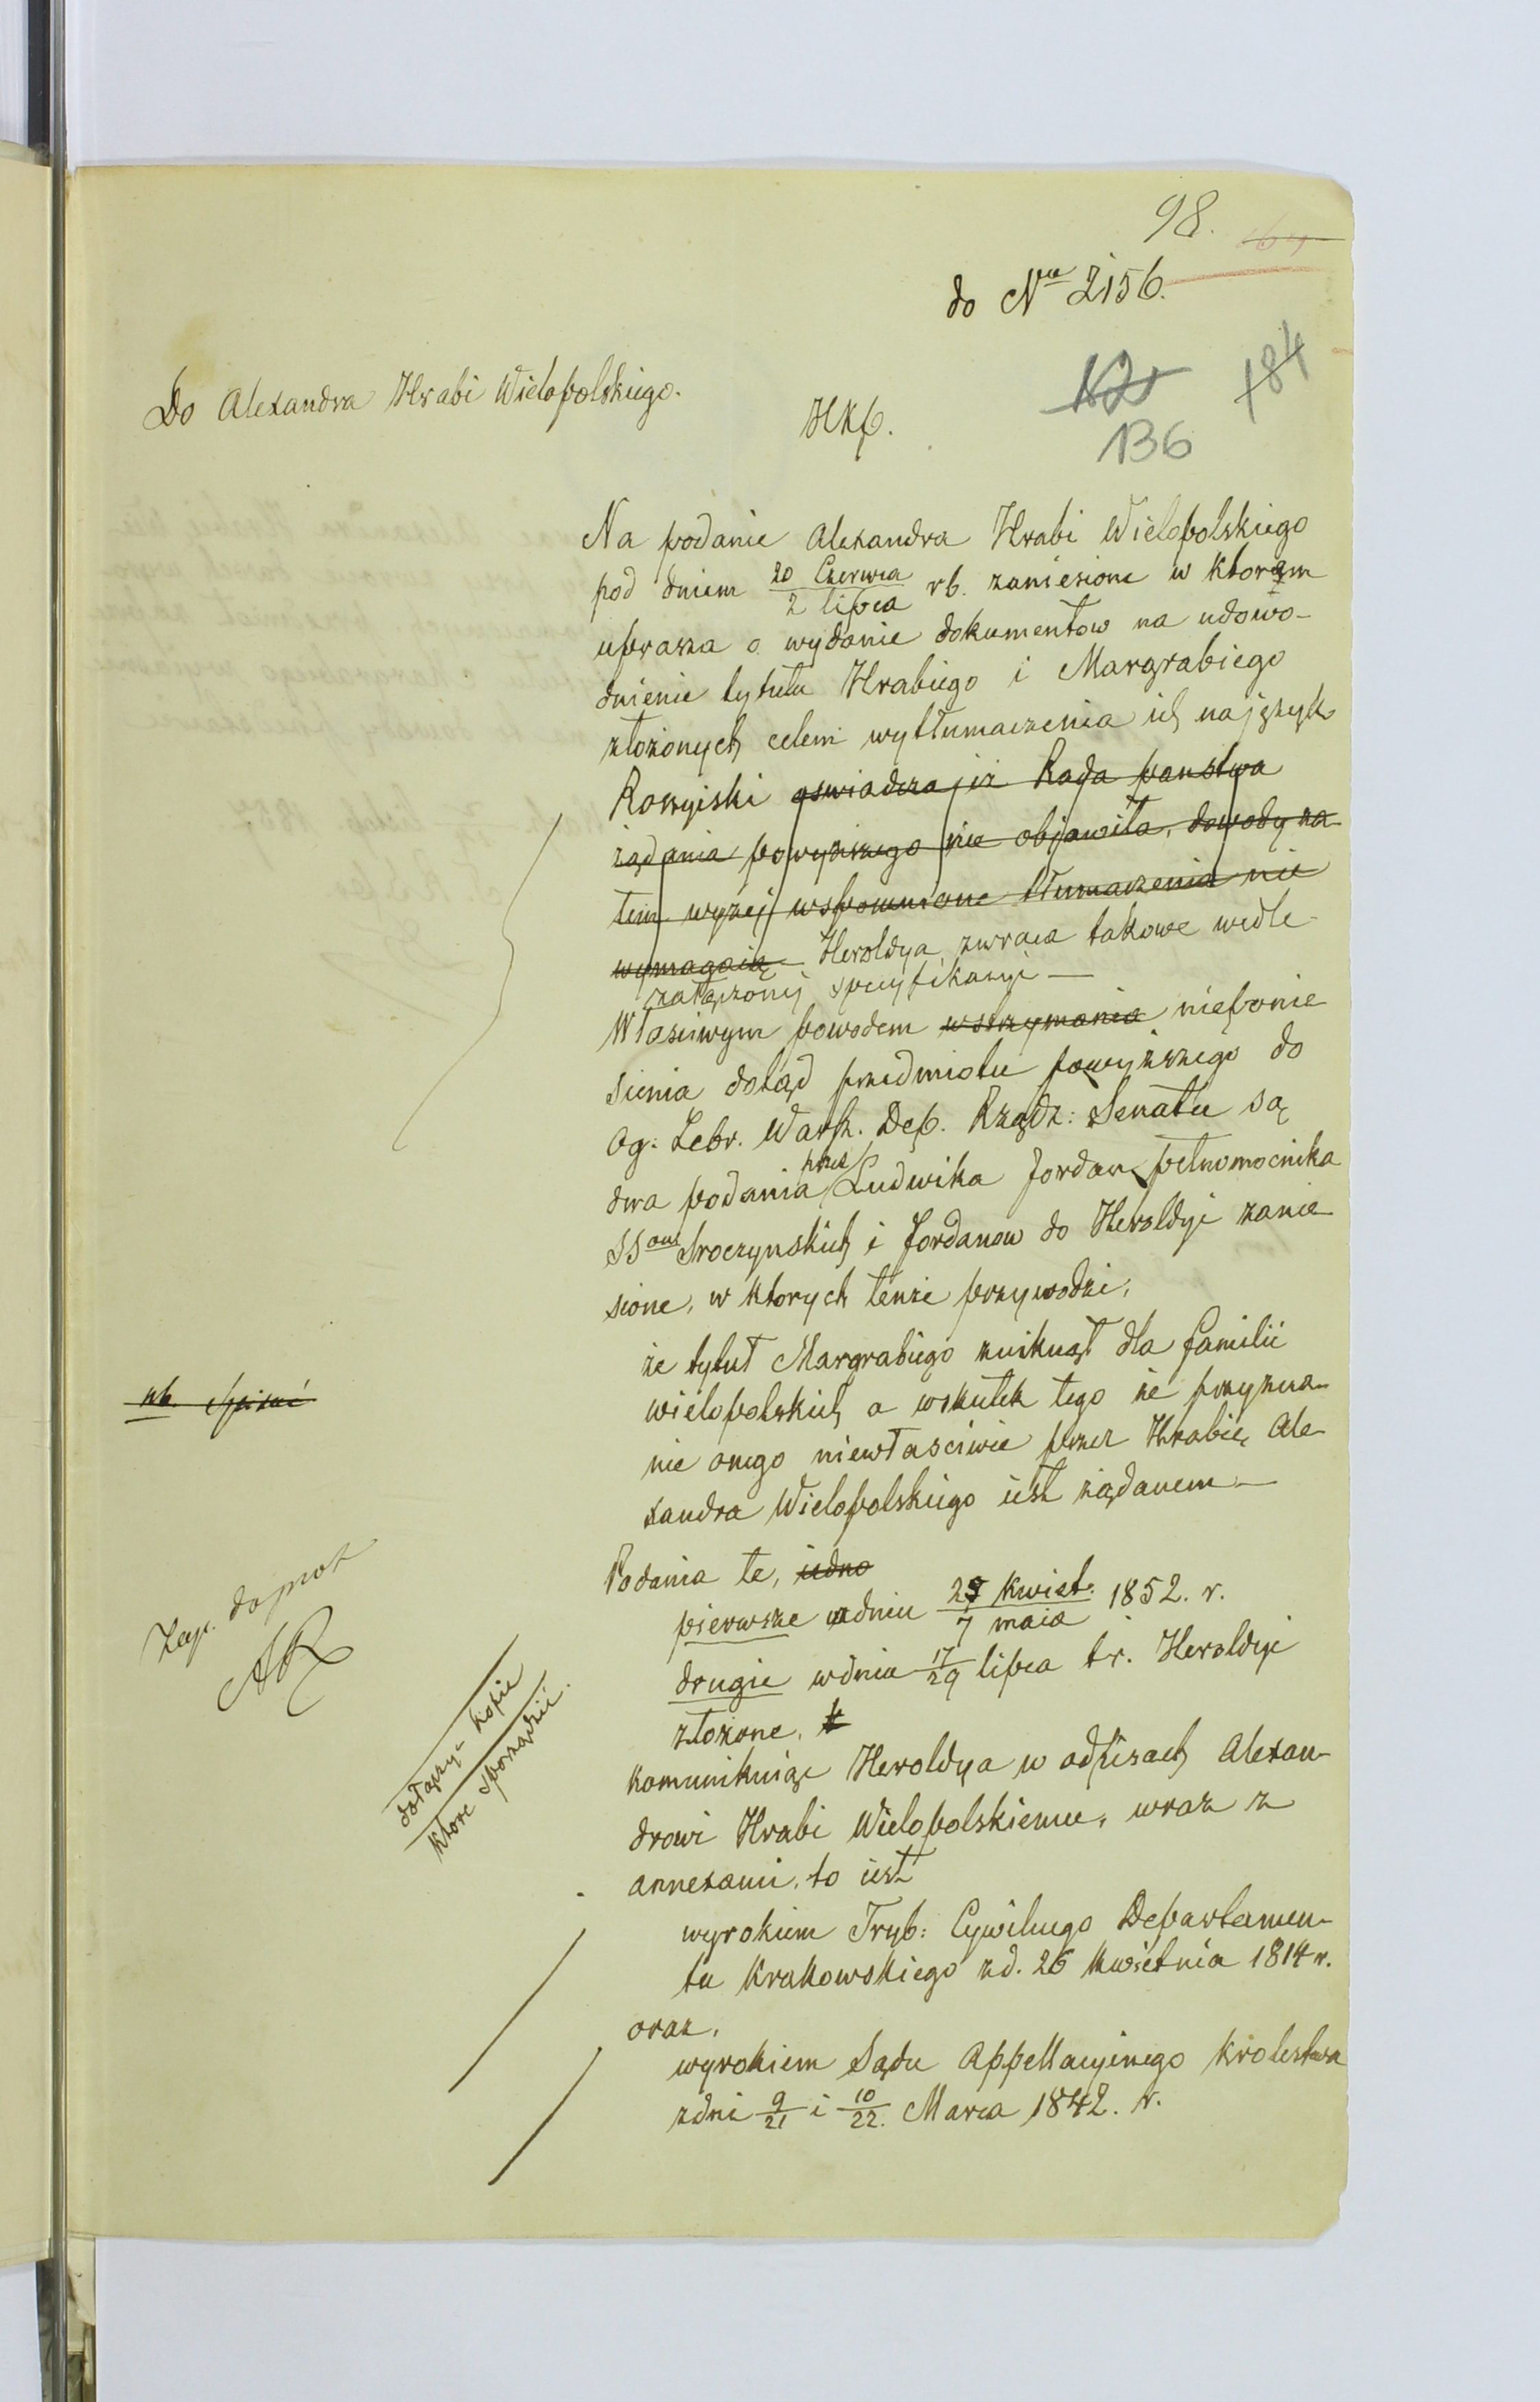 98.
do Nru 2156.
184
136
Do Alexandra Hrabi Wielopolskiego.
HKP.
Na podanie Alexandra Hrabi Wielopolskiego
pod dniem 20 Czerwca / 2 lipca rb. zaniesione w którem
uprasza o wydanie dokumentow na udowo-
dnienie tytułu Hrabiego i Margrabiego
złożonych celem wytłumaczenia ich na język
Rossyiski oswiadcza jiż Rada panstwa
żądania powyższego nie objawiła, dowody za
tem wyżej wspomnione tłumaczenia nie
wymagaią Heroldya zwraca takowe wedle
załączonej specyfikacyi —
Własciwym powodem wstrzymania nieponie
sienia dotąd przedmiotu powyższego do
Og: Zebr. Warsz. Dep. Rządz: Senatu są
dwa podania przez Ludwika Jordan pełnomocnika
SSow Sroczynskich i Jordanow do Heroldyi zanie
sione, w ktorych tenże przywodzi,
że tytuł Margrabiego zniknął dla familii
wielopolskich a wskutek tego że przyzna-
nie onego niewłasciwie przez Hrabię Ale
xandra Wielopolskiego iest żądanem —
Podania te, iedno
pierwsze wdniu 25 Kwiet. / 7 maia 1852. r.
drugie wdniu 17/29 lipca t.r. Heroldyi
złożone.
komunikuiąc Heroldya w odpisach Alexan-
drowi Hrabi Wielopolskiemu, wraz z
annexami, to iest
wyrokiem Tryb: Cywilnego Departamen-
tu Krakowskiego zd. 26 kwietnia 1814 r.
oraz,
wyrokiem Sądu Appellacyinego Krolestwa
zdni 9/21 i 10/22. Marca 1842. r.
nb.
Zap. do prot
AR
dołączyć kopie
ktore sporządzić.